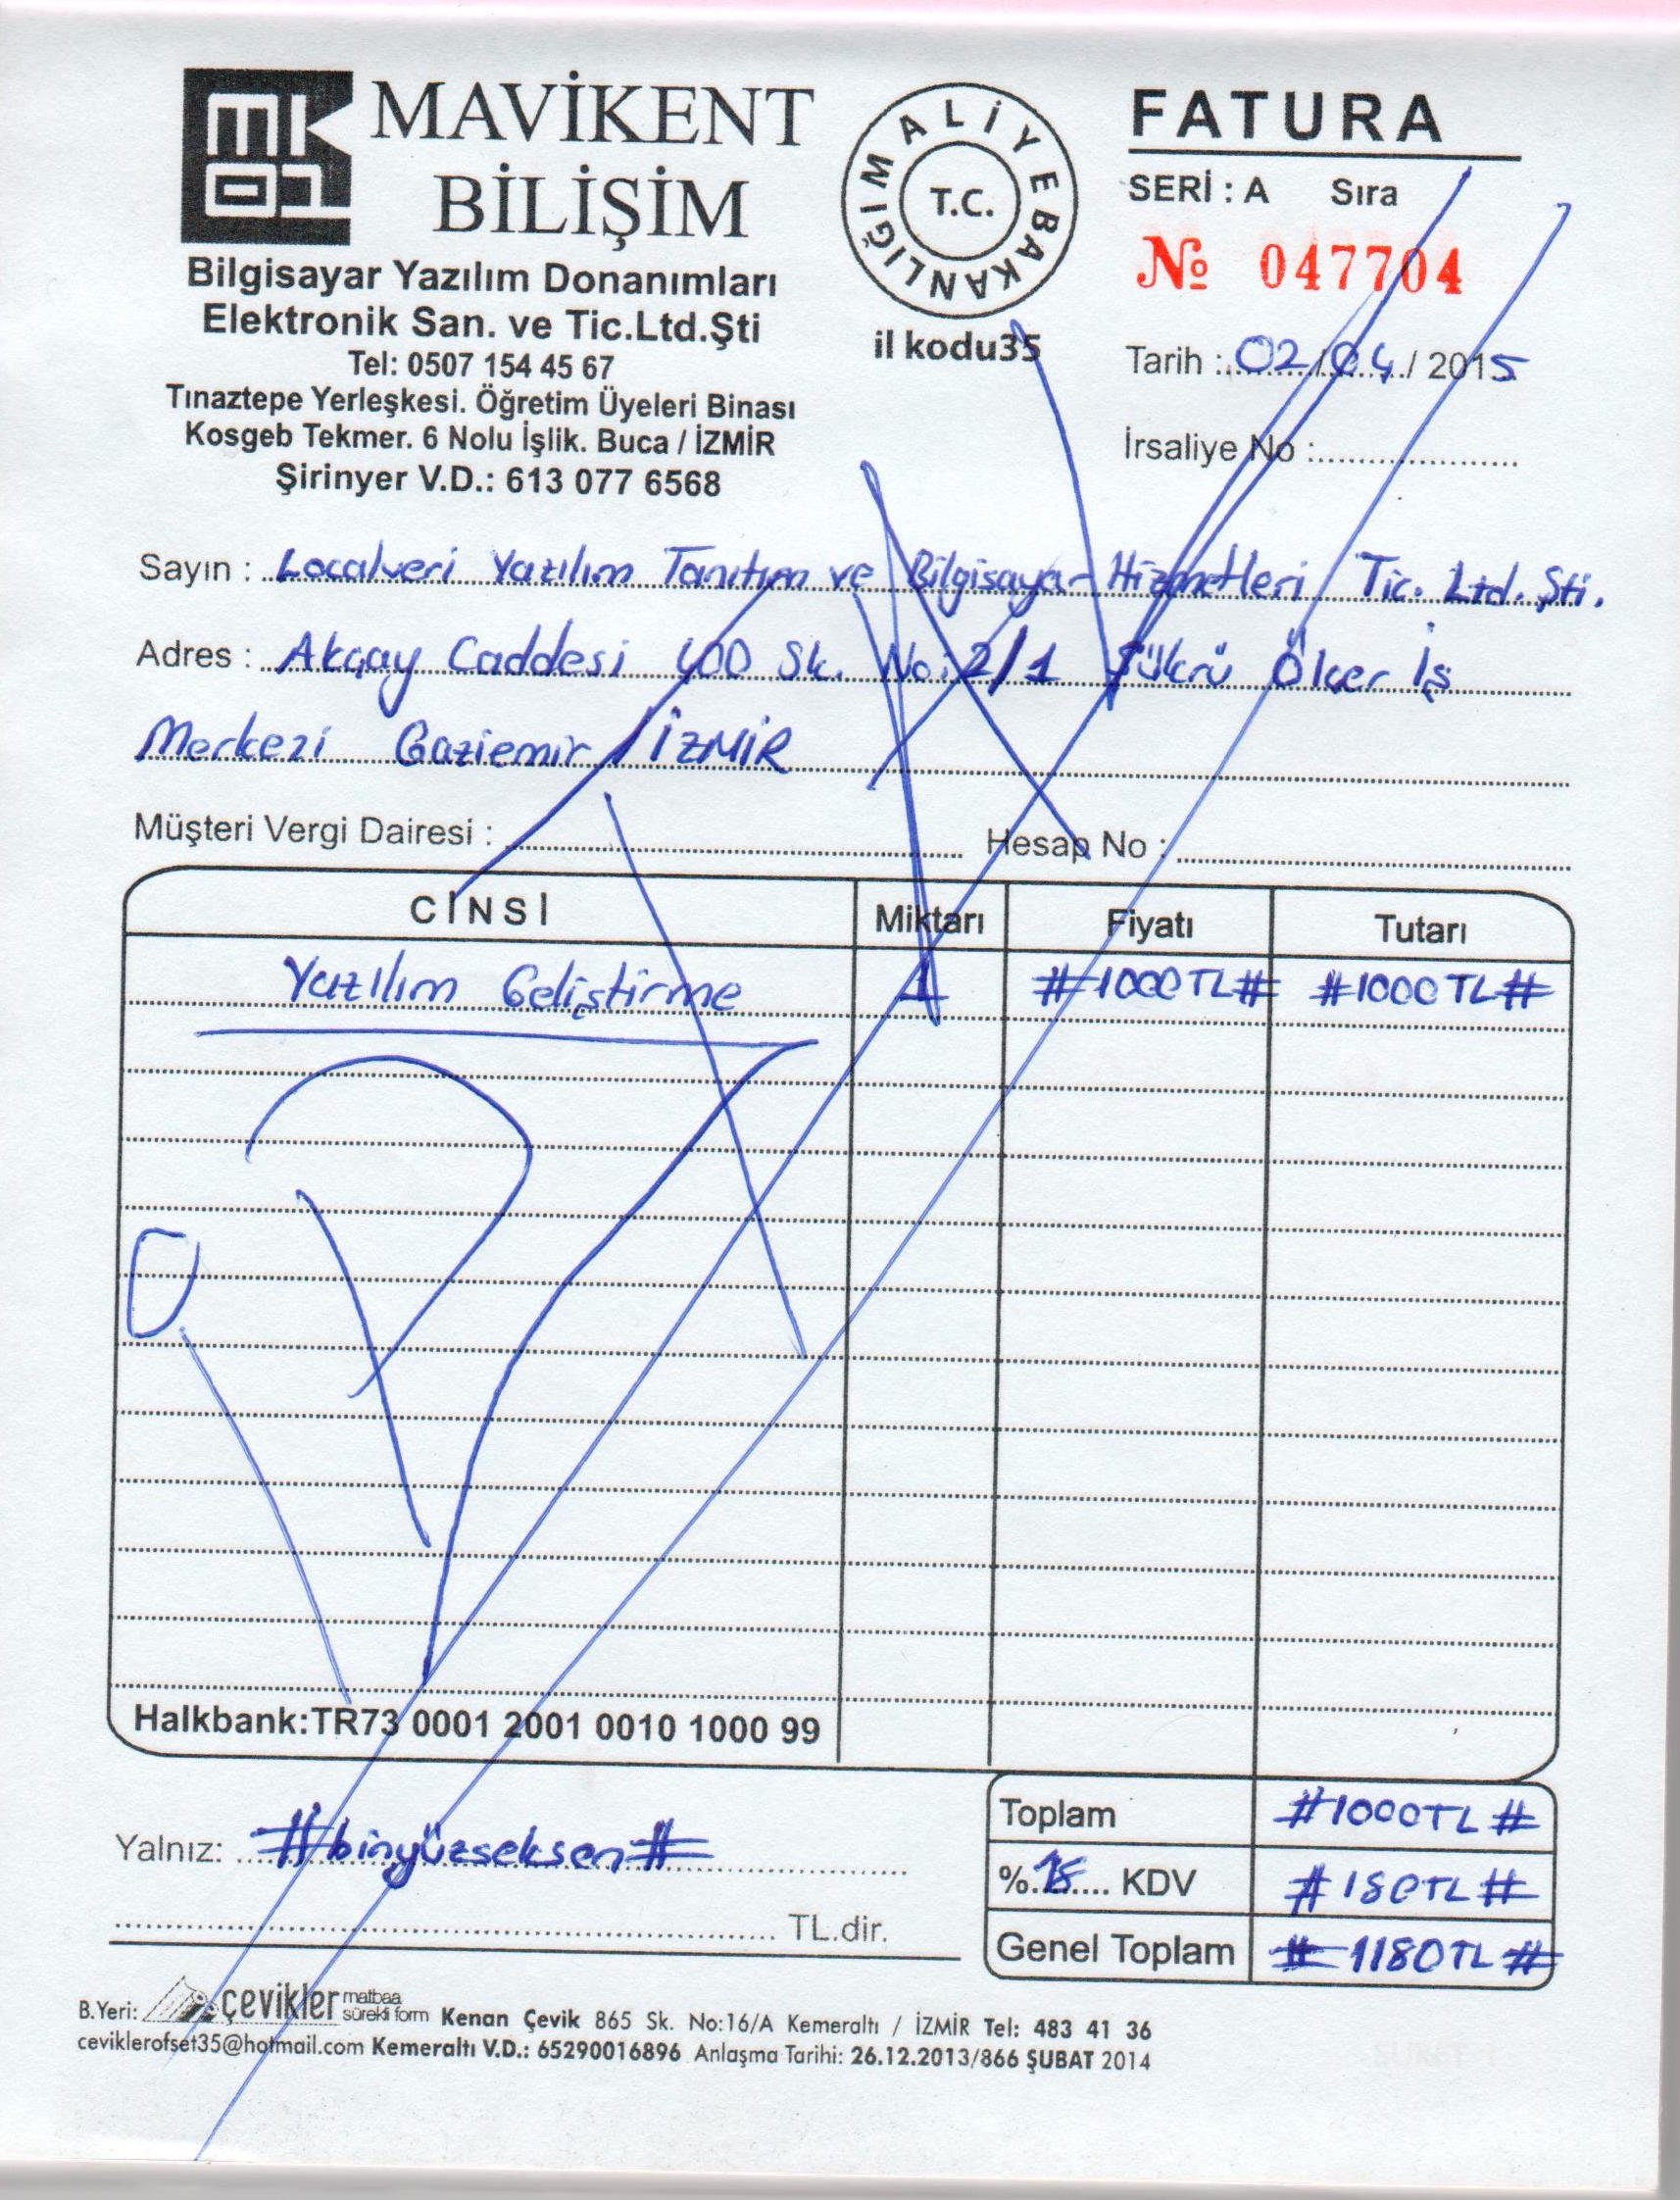 mk01
MAVİKENT
BİLİŞİM
Bilgisayar Yazılım Donanımları
Elektronik San. ve Tic.Ltd.Şti
Tel: 0507 154 45 67
Tınaztepe Yerleşkesi. Öğretim Üyeleri Binası
Kosgeb Tekmer. 6 Nolu İşlik. Buca / İZMİR
Şirinyer V.D.: 613 077 6568
MALİYE BAKANLIĞI
T.C.
il kodu35
FATURA
SERİ : A Sıra
№ 047704
Tarih : 02 / 04 / 2015
İrsaliye No :
Sayın : Localveri Yazılım Tanıtım ve Bilgisayar Hizmetleri Tic. Ltd. Şti.
Adres : Akçay Caddesi 400 Sk. No: 2/1 Şükrü Ölçer İş
Merkezi Gaziemir / İZMİR
Müşteri Vergi Dairesi : Hesap No :
CİNSİ Miktarı Fiyatı Tutarı
Yazılım Geliştirme 1 #1000TL# #1000TL#
Halkbank:TR73 0001 2001 0010 1000 99
Toplam #1000TL#
Yalnız: #binyüzseksen#
%18 KDV #180TL#
TL.dir.
Genel Toplam #1180TL#
B.Yeri: çevikler matbaa sürekli form Kenan Çevik 865 Sk. No:16/A Kemeraltı / İZMİR Tel: 483 41 36
ceviklerofset35@hotmail.com Kemeraltı V.D.: 65290016896 Anlaşma Tarihi: 26.12.2013/866 ŞUBAT 2014